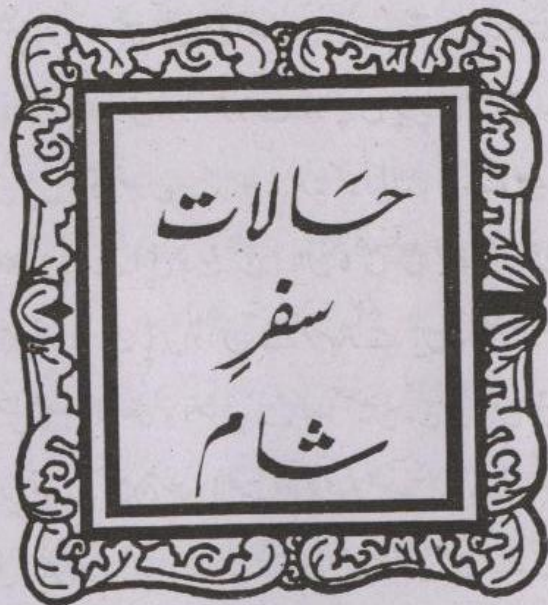 حَالات
سفرِ
شام